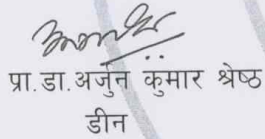 प्रा.डा.अर्जुन कुमार श्रेष्ठ
डीन